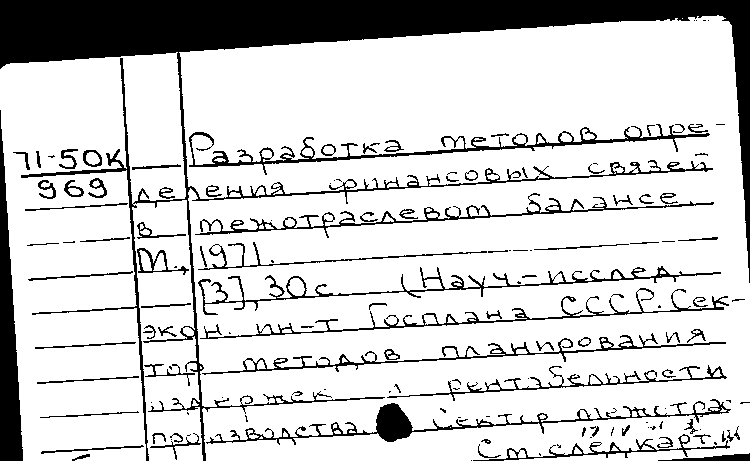 71-50к
969
Разработка методов опре-
деления финансовых связей
в межотраслевом балансе.
М., 1971.
[3], 30с. (Науч.-исслед.
экон. ин-т Госплана СССР. Сек-
тор методов планирования
издержек и рентабельности
производства. Сектор межотрас-
См. след. карт.